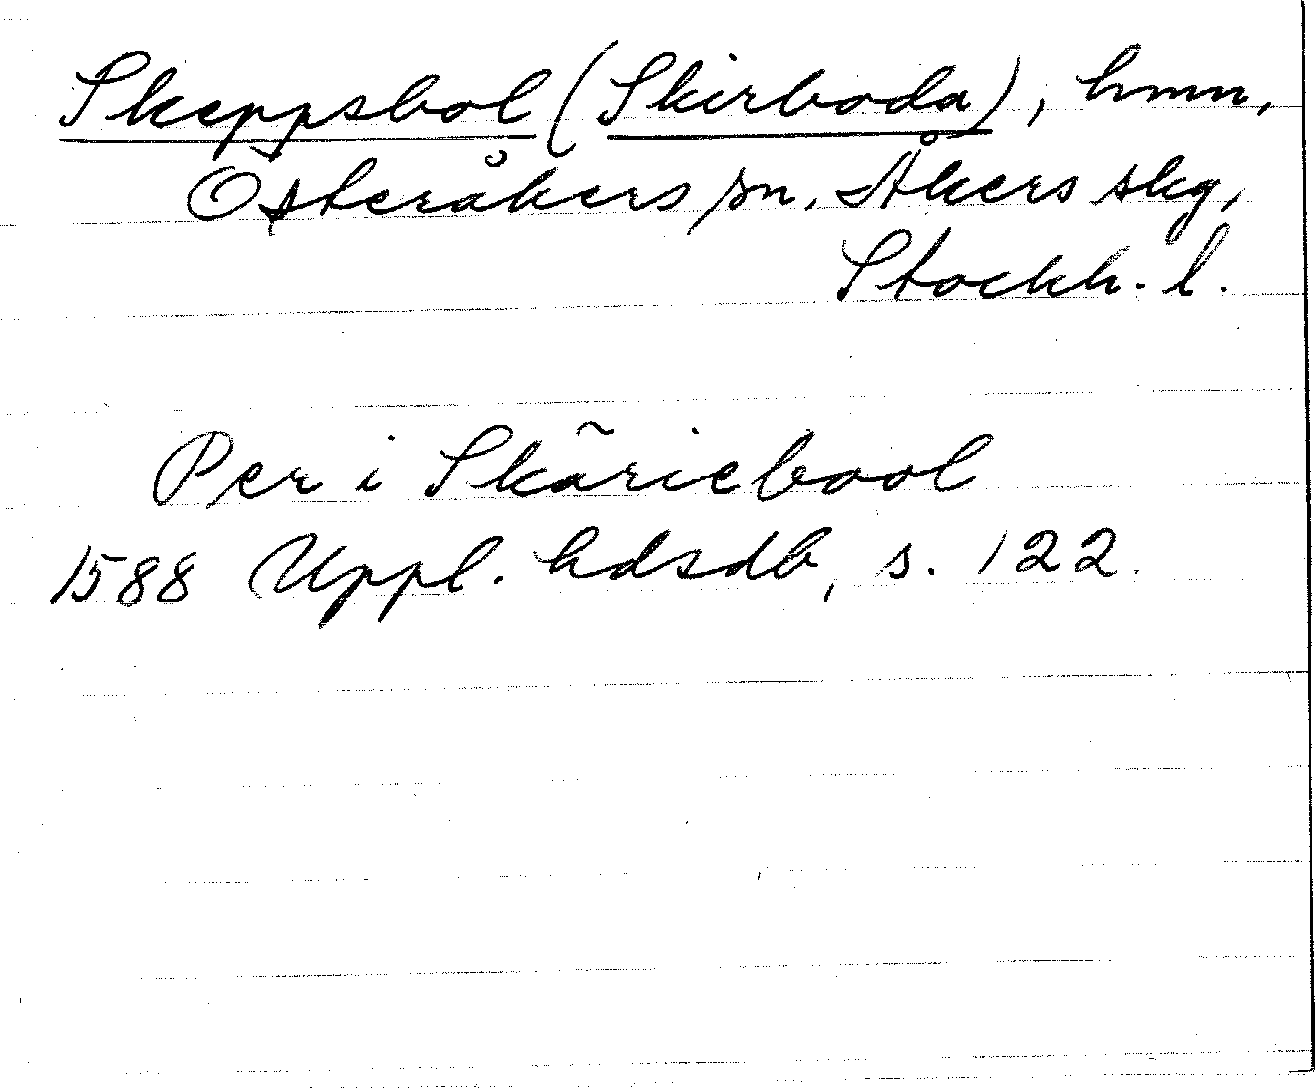 Skeppsbol (Skirboda), hmn,
Österåkers sn, Åkers skg,
Stockh. l.
Per i Skãriebool
1588 Uppl. hdsdb, s. 122.